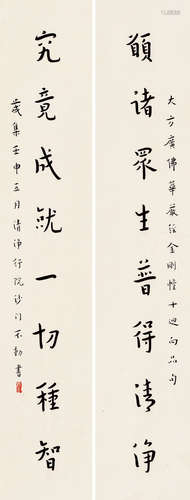 大方廣佛華嚴經金剛幢十迴向品句
願諸眾生普得清淨
究竟成就一切種智
歲集壬申三月清淨行院沙門不動書